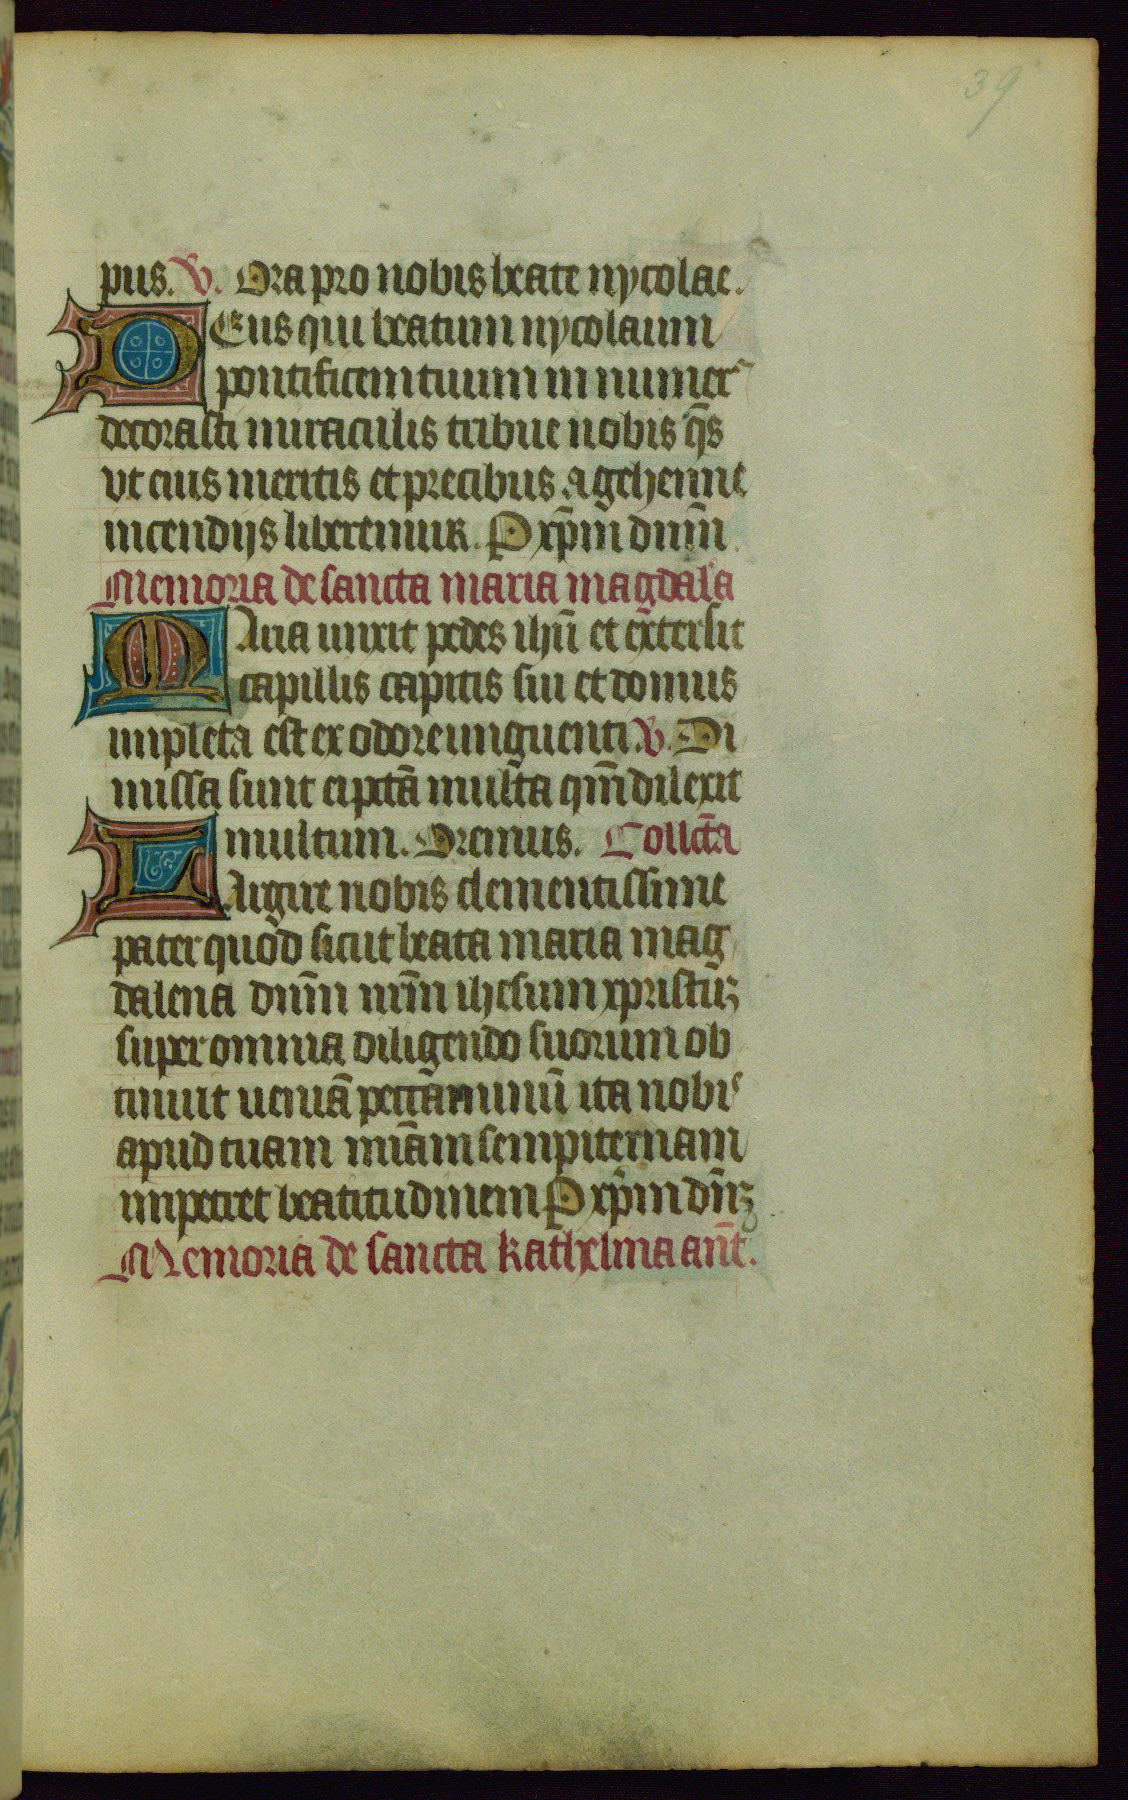 39
pus. V. Ora pro nobis beate nycolae.
DEus qui beatum nycolaum
pontificem tuum in numer᷒
decorasti miraculis tribue nobis q̄s
vt eius meritis et precibus a gehenne
incendijs liberemur. P xp̄m dnm̄
Memoria de sancta maria magdal'a
MAria unxit pedes ihū et extersit
capillis capitis sui et domus
impleta est ex odore unguenti. V. Di
missa sunt ei pctā multa qm̄ dilexit
multum. Oremus. Collcā
LArgire nobis clementissime
pater quod sicut beata maria mag
dalena dnm̄ nrm̄ ihesum xpristūꝫ
super omnia diligendo suorum ob
tinuit ueniā peccaminū ita nobis
apud tuam miām sempiternam
impetret beatitudinem P xp̄m dn̄ꝫ
Memoria de sancta katherina anͭ.